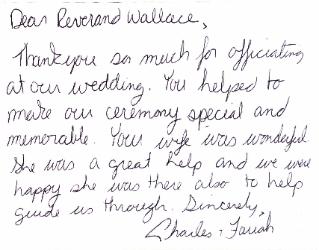 Dear Reverand Wallace,
Thank you so much for officiating
at our wedding. You helped to
make our ceremony special and
memorable. Your wife was wonderful.
She was a great help and we were
happy she was there also to help
guide us through. Sincerely,
Charles + Fariah